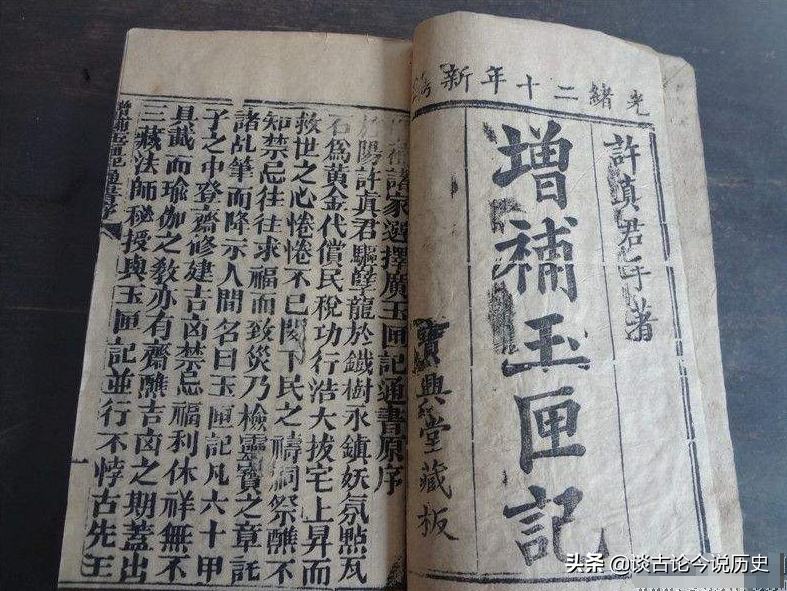 光緒二十年新
許真君手著
增補玉匣記
寶興堂藏板
補諸家選擇廣玉匣記通書原序
陽許真君驅孽龍於鐵樹永鎮妖氛點瓦
石爲黃金代償民稅功行浩大拔宅上昇而
救世之心惓惓不已閔下民之禱祠祭醮不
知禁忌往往求福而致災乃檢靈寶之章託
諸乩筆而降示人間名曰玉匣記凡六十甲
子之中登齋修建吉凶禁忌福利休祥無不
具載而瑜伽之教亦有齋醮吉凶之期蓋出
三藏法師秘授與玉匣記並行不悖古先王
增補玉匣記通書序
一
头条 @谈古论今说历史